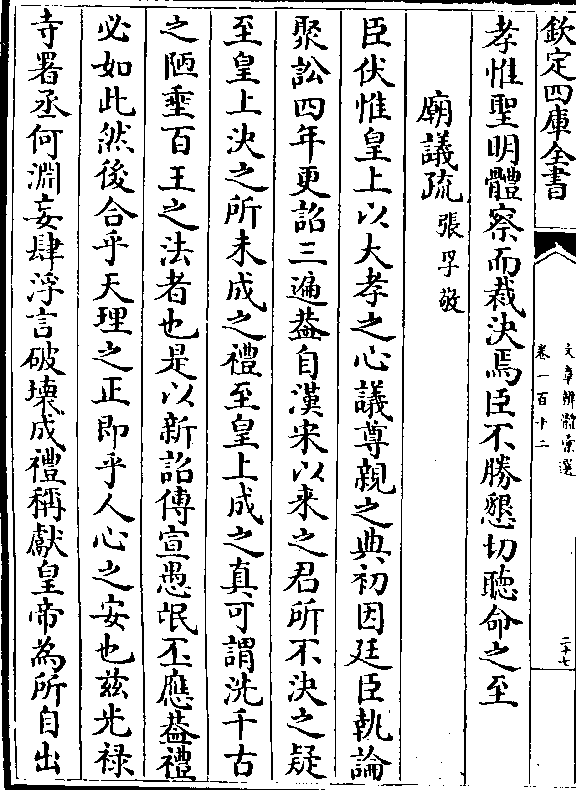 欽定四庫全書
文章辨體彙選
卷一百十二
二十七
孝惟聖明體察而裁決焉臣不勝懇切聽命之至
廟議疏張孚敬
臣伏惟皇上以大孝之心議尊親之典初因廷臣執論
聚訟四年更詔三遍葢自漢宋以來之君所不決之疑
至皇上決之所未成之禮至皇上成之真可謂洗千古
之陋垂百王之法者也是以新詔傳宣愚氓丕應葢禮
必如此然後合乎天理之正即乎人心之安也兹光禄
寺署丞何淵妄肆浮言破壞成禮稱獻皇帝為所自出